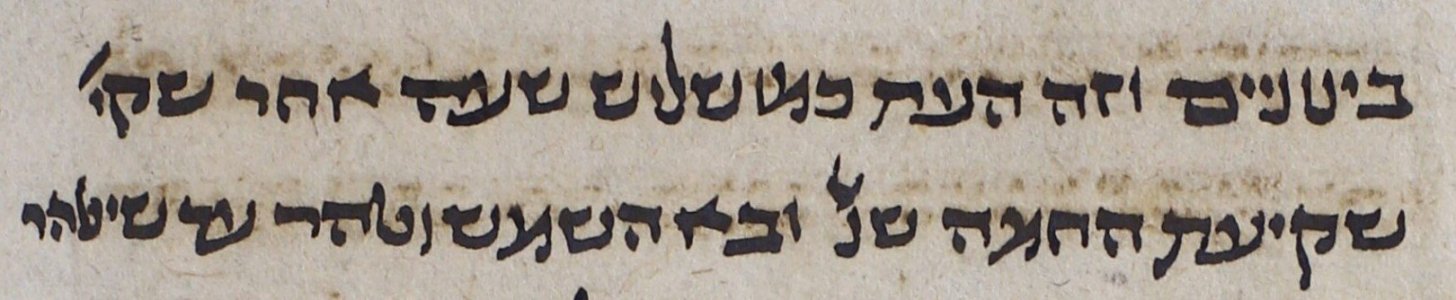 בינוניים וזה העת כמו שליש שעה אחר שק'
שקיעת החמה שנ' ובא השמש וטהר עד שיטהר